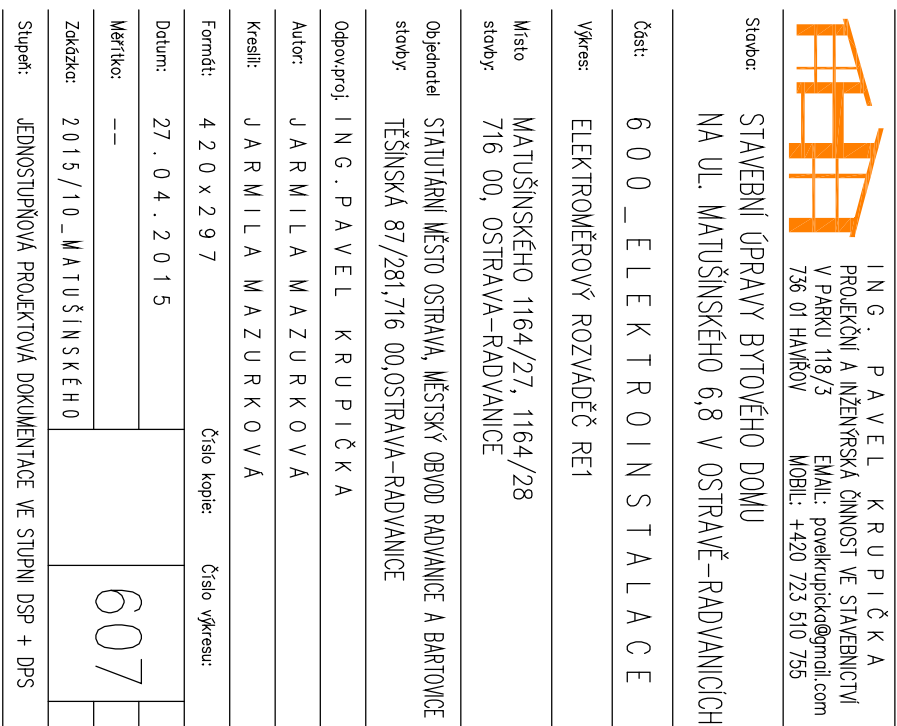 ING. PAVEL KRUPIČKA
PROJEKČNÍ A INŽENÝRSKÁ ČINNOST VE STAVEBNICTVÍ
V PARKU 118/3 EMAIL: pavelkrupicka@gmail.com
736 01 HAVÍŘOV MOBIL: +420 723 510 755
Stavba: STAVEBNÍ ÚPRAVY BYTOVÉHO DOMU
NA UL. MATUŠÍNSKÉHO 6,8 V OSTRAVĚ-RADVANICÍCH
Část: 600_ELEKTROINSTALACE
Výkres: ELEKTROMĚROVÝ ROZVÁDĚČ RE1
Místo stavby: MATUŠÍNSKÉHO 1164/27, 1164/28
716 00, OSTRAVA-RADVANICE
Objednatel stavby: STATUTÁRNÍ MĚSTO OSTRAVA, MĚSTSKÝ OBVOD RADVANICE A BARTOVICE
TĚŠÍNSKÁ 87/281,716 00,OSTRAVA-RADVANICE
Odpov.proj. ING.PAVEL KRUPIČKA
Autor: JARMILA MAZURKOVÁ
Kreslil: JARMILA MAZURKOVÁ
Formát: 420x297
Číslo kopie: Číslo výkresu:
Datum: 27.04.2015
Měřítko: --
607
Zakázka: 2015/10_MATUŠÍNSKÉHO
Stupeň: JEDNOSTUPŇOVÁ PROJEKTOVÁ DOKUMENTACE VE STUPNI DSP + DPS